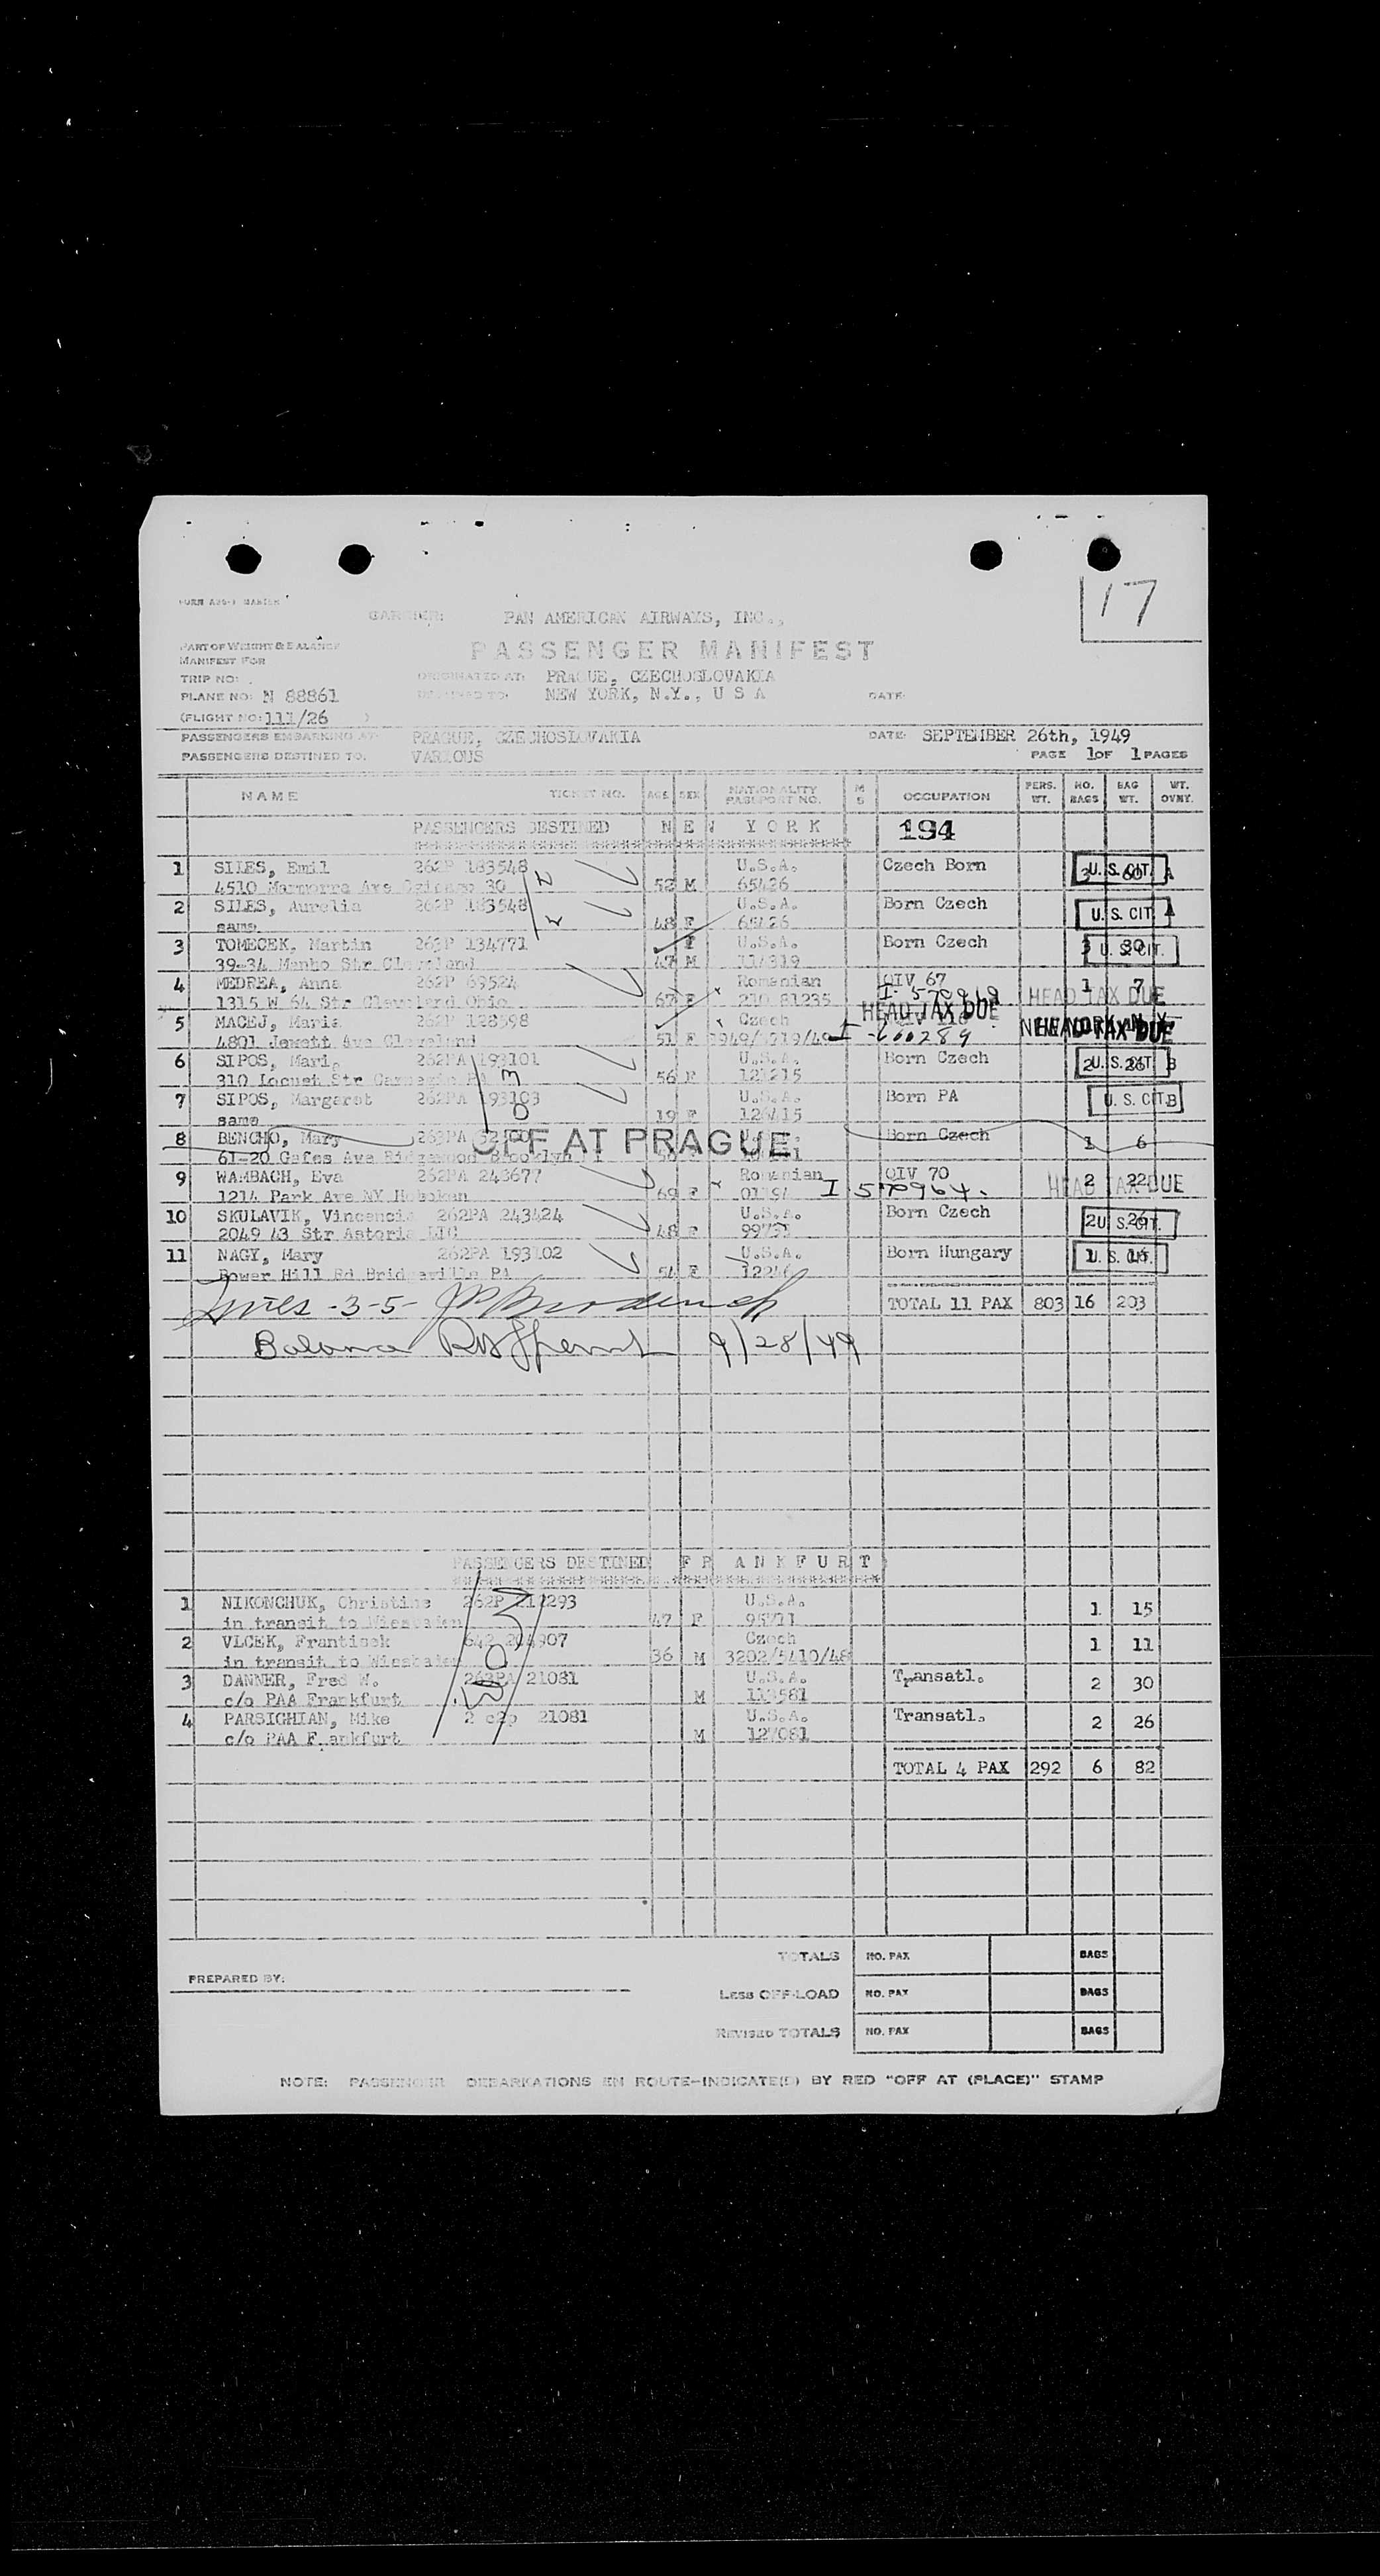 17
CARRIER: PAN AMERICAN AIRWAYS, INC.,
PART OF WEIGHT & BALANCE
PASSENGER MANIFEST
MANIFEST FOR
TRIP NO: ORIGINATED AT: PRAGUE, CZECHOSLOVAKIA
PLANE NO: N 88861 DESTINED TO: NEW YORK, N.Y., U S A DATE:
(FLIGHT NO: 111/26 )
PASSENGERS EMBARKING AT: PRAGUE, CZECHOSLOVAKIA DATE: SEPTEMBER 26th, 1949
PASSENGERS DESTINED TO: VARIOUS PAGE 1 OF 1 PAGES
NAME TICKET NO. AGE SEX NATIONALITY PASSPORT NO. M S OCCUPATION PERS. WT. NO. BAGS BAG WT. WT. OVNY.
PASSENGERS DESTINED N E W Y O R K 194
1 SILES, Emil 262P 183548 U.S.A. Czech Born 3 60 U. S. CIT. A
4510 Ave 30 52 M 65426
2 SILES, Aurelia 262P 183548 U.S.A. Born Czech U. S. CIT. A
same 48 F 65426
3 TOMECEK, Martin 263P 134771 U.S.A. Born Czech 3 30 U. S. CIT.
39-34 Str Cleveland 47 M
4 MEDREA, Anna 262P 69524 Romanian QIV 67 1 7 HEAD TAX DUE
1315 W 64 Str Cleveland Ohio 67 F 210 81235 HEAD TAX DUE
5 MACEJ, Maria 262P 128598 Czech NEW YORK, N. Y.
4801 Jewett Ave Cleveland 51 F I -600289 HEAD TAX DUE
6 SIPOS, 262PA 193101 U.S.A. Born Czech 2 26 U. S. CIT. B
310 Locust Str PA 56 F 121215
7 SIPOS, Margaret 262PA 193103 U.S.A. Born PA U. S. CIT. B
same 19 F 126415
8 BENCHO, Mary OFF AT PRAGUE Born Czech 1 6
61-20 Gates Ave Ridgewood Brooklyn
9 WAMBACH, Eva 262PA 243677 Romanian QIV 70 2 22 HEAD TAX DUE
1214 Park Ave NY Hoboken 69 F I 570964.
10 SKULAVIK, Vincencia 262PA 243424 U.S.A. Born Czech 2 26 U. S. CIT.
2049 43 Str Astoria LIC 48 F
11 NAGY, Mary 262PA 193102 U.S.A. Born Hungary 1 U. S. CIT.
Bower Hill Rd Bridgeville PA 54 F
TOTAL 11 PAX 803 16 203
-3-5-
Balance 9/28/49
PASSENGERS DESTINED F R A N K F U R T
1 NIKONCHUK, Christine 262P 212293 U.S.A. 1 15
in transit to Wiesbaden 47 F 95711
2 VLCEK, Frantisek Czech 1 11
in transit to Wiesbaden 36 M 3202/5410/48
3 DANNER, Fred W. 263PA 21081 U.S.A. Transatl. 2 30
c/o PAA Frankfurt M 113581
4 PARSIGHIAN, Mike 21081 U.S.A. Transatl. 2 26
c/o PAA Frankfurt M 127081
TOTAL 4 PAX 292 6 82
TOTALS NO. PAX BAGS
PREPARED BY:
LESS OFF-LOAD NO. PAX BAGS
REVISED TOTALS NO. PAX BAGS
NOTE: PASSENGER DEBARKATIONS EN ROUTE-INDICATE(D) BY RED "OFF AT (PLACE)" STAMP